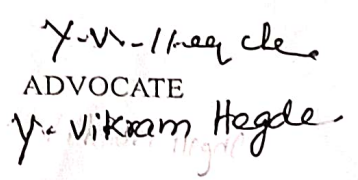 Y. V. Hegde
ADVOCATE
Y. Vikram Hegde.